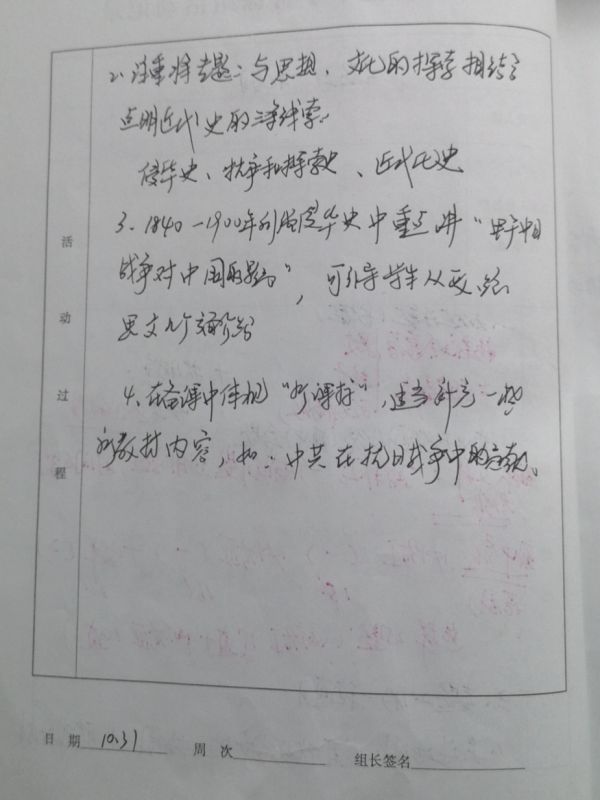 2、注重将专题二与思想、文化的探索相结合
点明近代史的三条线索:
侵华史、抗争和探索史、近代化史
3、1840-1900年列强侵华史中重点讲"甲午中日
战争对中国的影响",可引导学生从政、经
思文几个方面分
4、在备课中体现"新课标",适当补充一些
新教材内容,如:中共在抗日战争中的
活动过程
日期 10.31 周次 组长签名